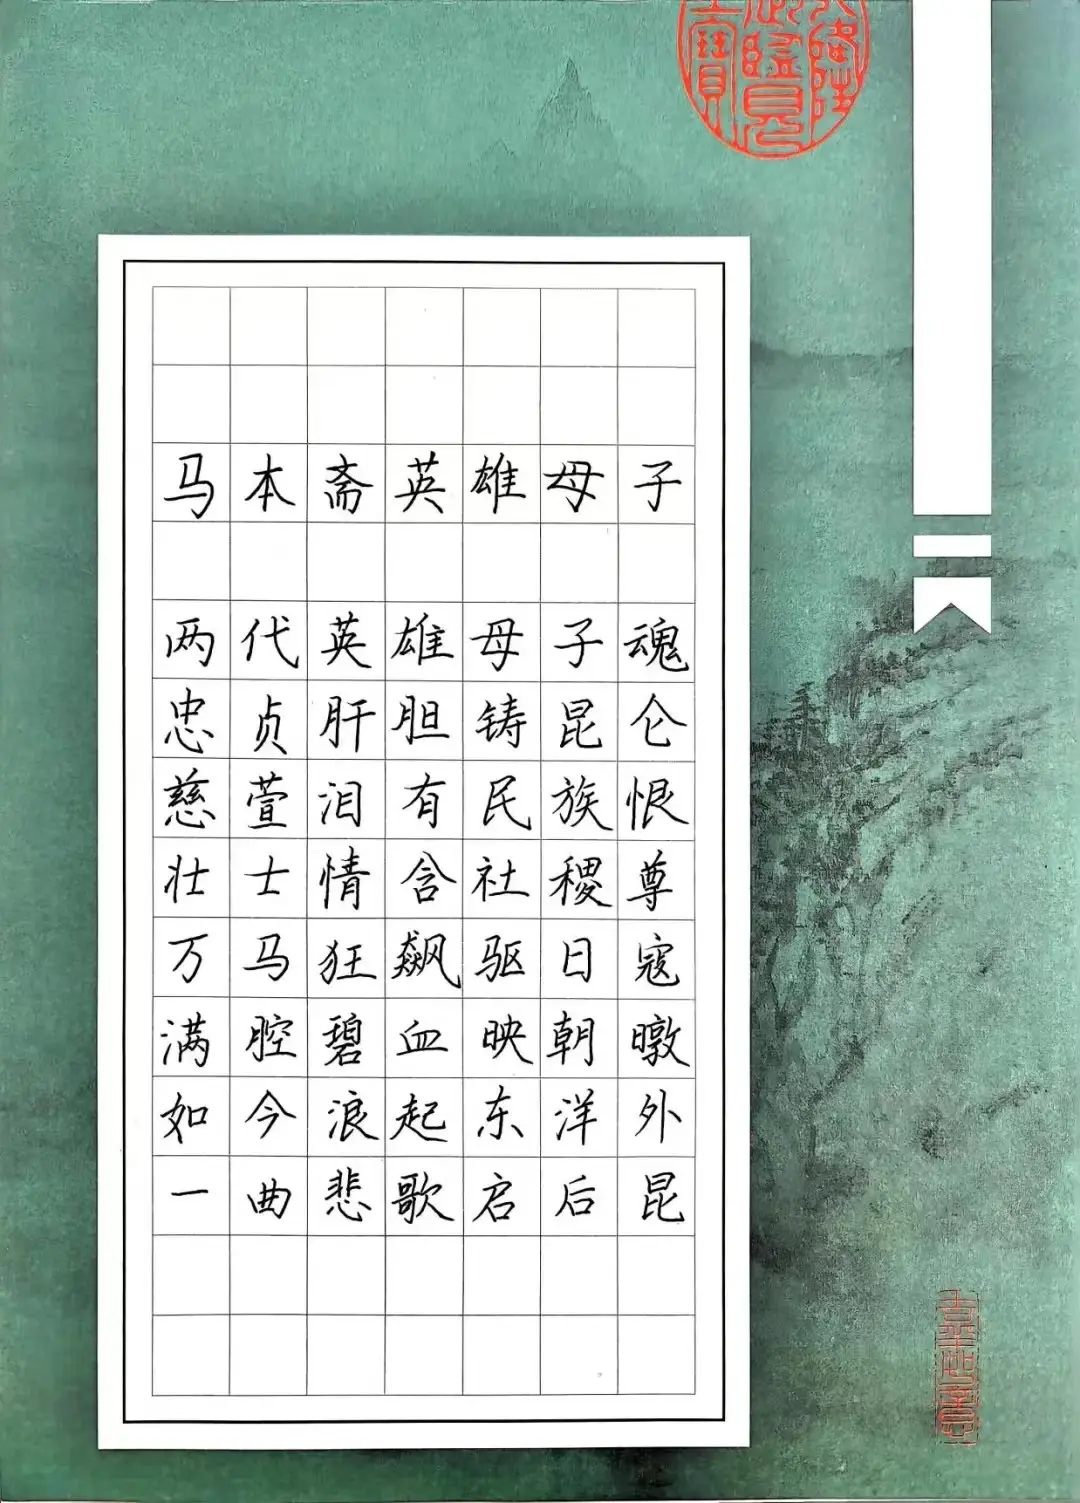 马本斋英雄母子
两代英雄母子魂
忠贞肝胆铸昆仑
慈萱泪有民族恨
壮士情含社稷尊
万马狂飙驱日寇
满腔碧血映朝暾
如今浪起东洋外
一曲悲歌启后昆